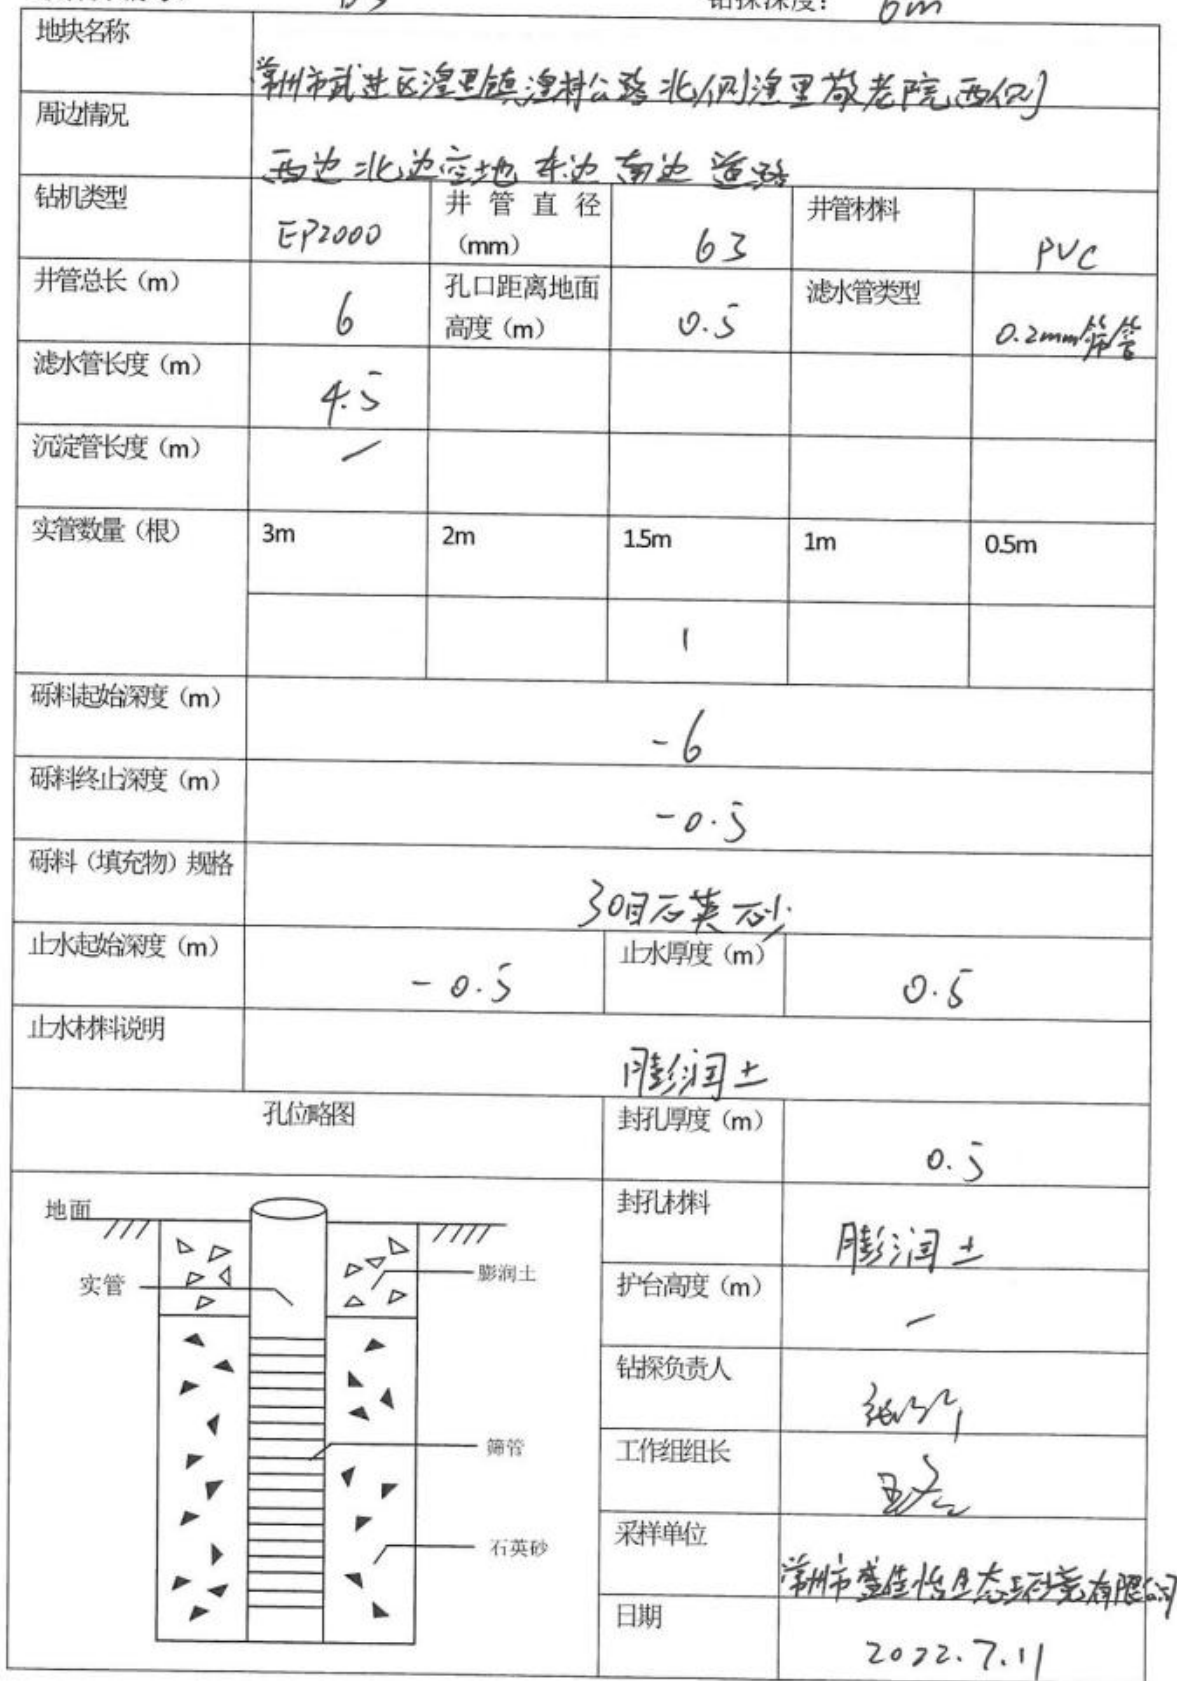 钻探深度： 6m
地块名称
常州市武进区湟里镇湟村公路北侧湟里敬老院西侧
周边情况
西边北边空地 东边南边道路
钻机类型 EP2000 井管直径（mm） 63 井管材料 PVC
井管总长（m） 6 孔口距离地面高度（m） 0.5 滤水管类型 0.2mm筛管
滤水管长度（m） 4.5
沉淀管长度（m） /
实管数量（根） 3m 2m 1.5m 1m 0.5m
1
砾料起始深度（m） -6
砾料终止深度（m） -0.5
砾料（填充物）规格 30目石英砂
止水起始深度（m） -0.5 止水厚度（m） 0.5
止水材料说明 膨润土
孔位略图 封孔厚度（m） 0.5
封孔材料 膨润土
护台高度（m） /
钻探负责人
工作组组长
采样单位 常州市盛佳怡生态环境有限公司
日期 2022.7.11
地面
实管
膨润土
筛管
石英砂